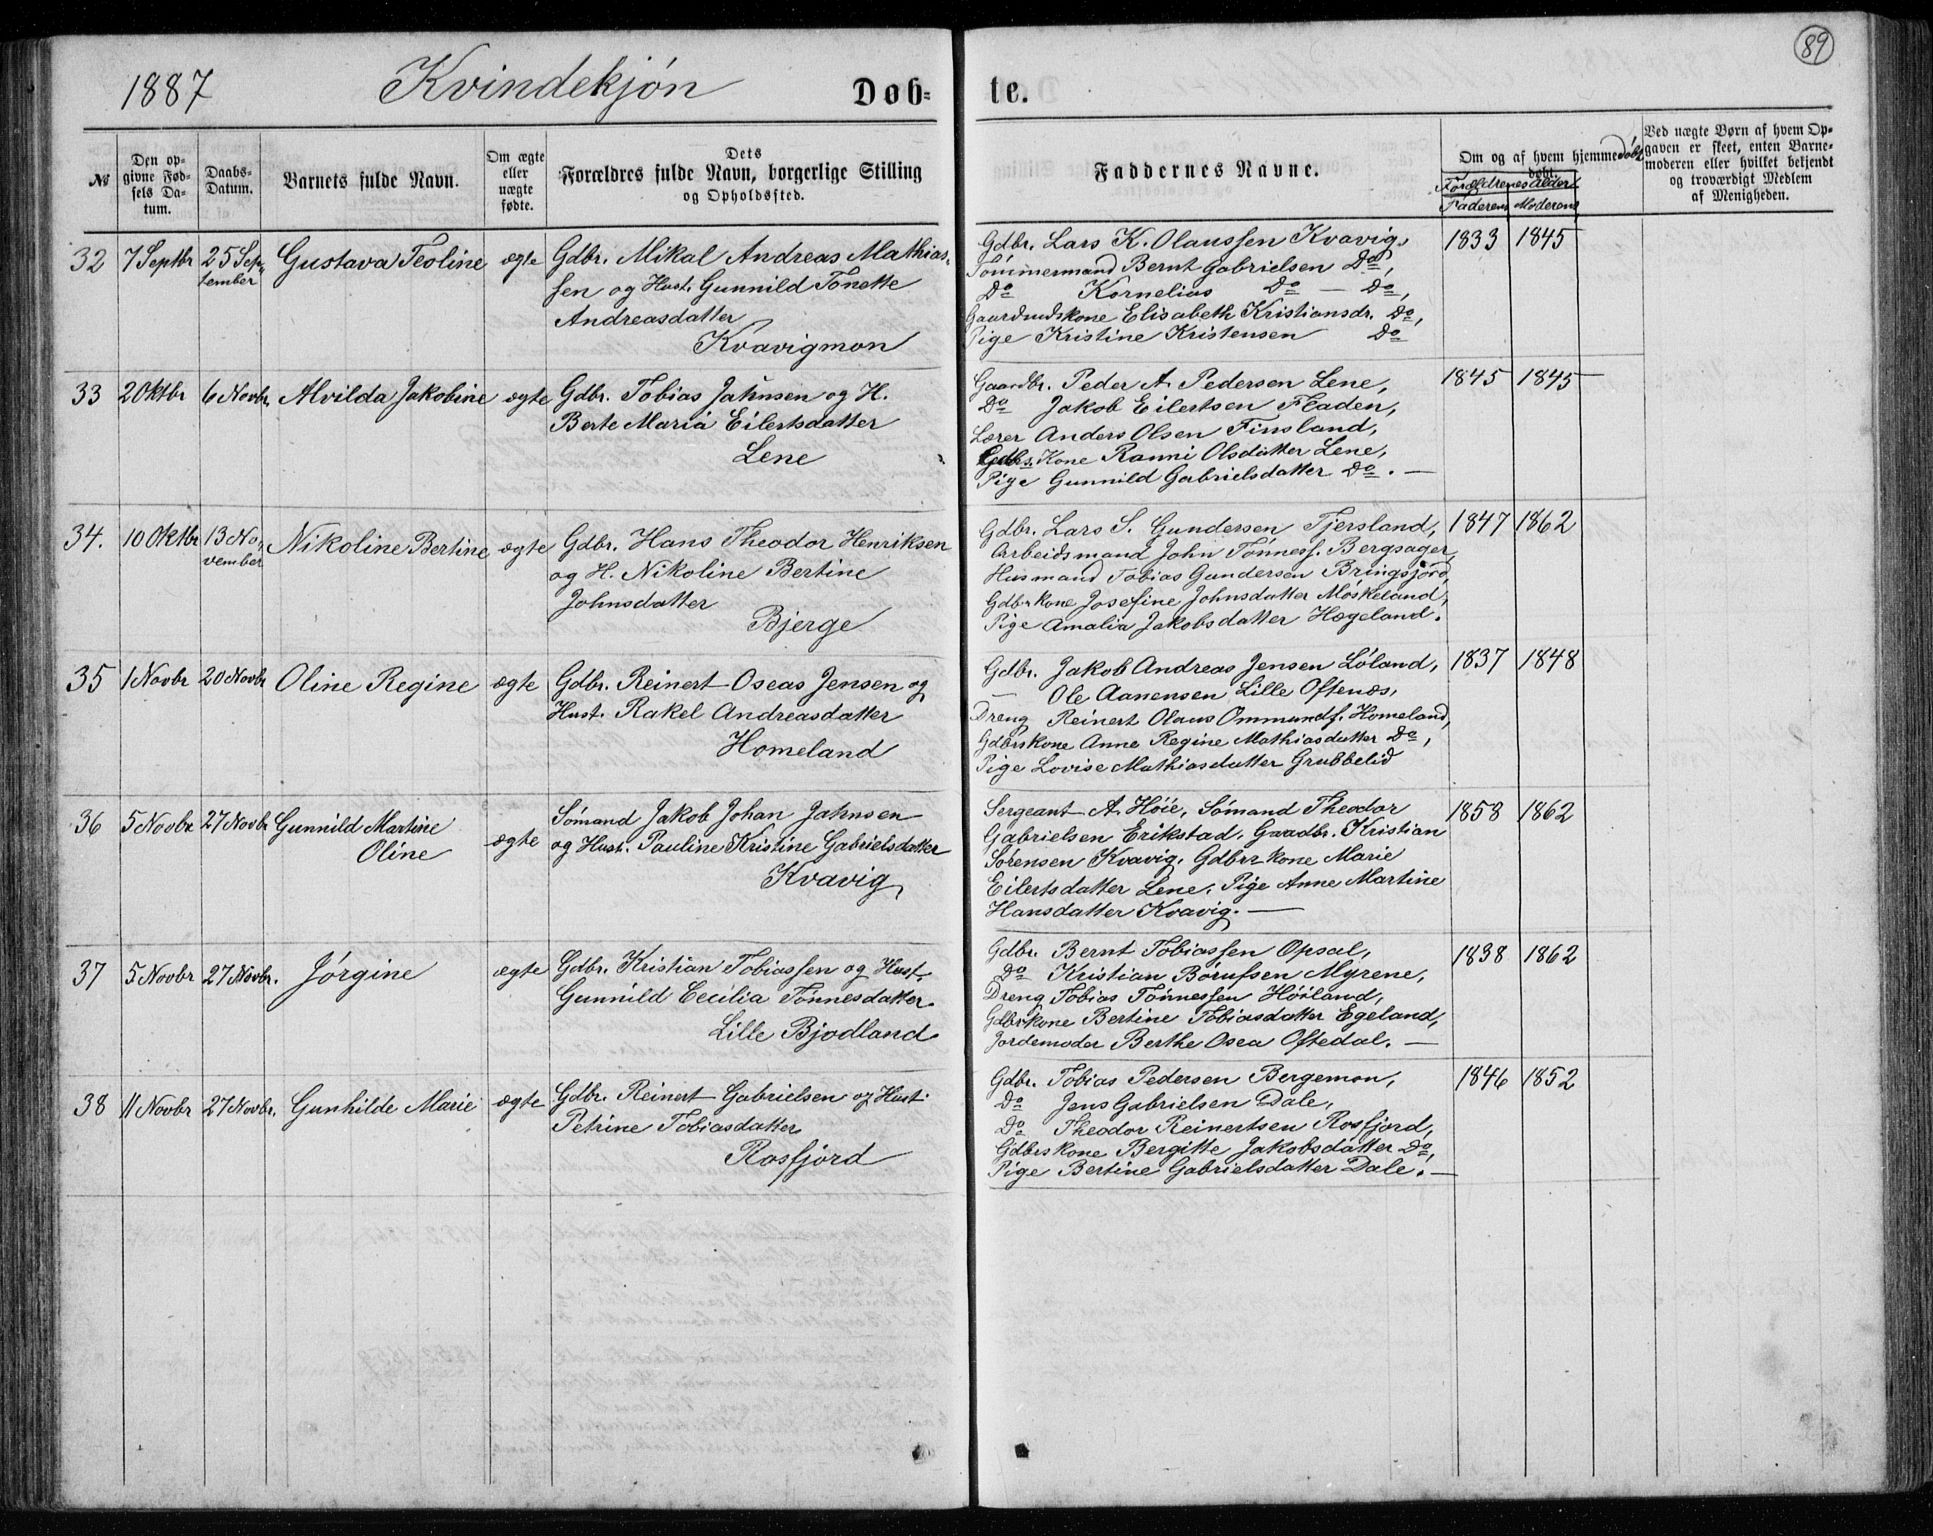 89
1887 Kvindekjøn Døb- te.
№
Den op-
givne Fød-
sels Da-
tum.
Daabs-
Datum.
Barnets fulde Navn.
Om ægte
eller
uægte
fødte.
Dets
Forældres fulde Navn, borgerlige Stilling
og Opholdssted.
Faddernes Navne.
Om og af hvem hjemmedøbt
døbt.
Forældrenes Alder
Faderens Moderens
Ved uægte Børn af hvem Op-
gaven er skeet, enten Barne-
moderen eller hvilket bekjendt
og troværdigt Medlem
af Menigheden.
32 7 Septbr 25 Sep-
tember
Gustava Teoline ægte
Gdbr. Mikal Andreas Mathias-
sen og Hust. Gunnild Tonette
Andreasdatter
Kvavigmon
Gdbr. Lars K. Olaussen Kvavig,
Tømmermand Bernt Gabrielsen Do,
Do Kornelius Do — Do,
Gaardmdskone Elisabeth Kristiansdr. Do,
Pige Kristine Kristensen Do
1833 1845
33 2 Oktbr 6 Novbr. Alvilda Jakobine ægte
Gdbr. Tobias Jahnsen og H.
Berte Maria Eilertsdatter
Lene
Gaardbr. Peder A. Pedersen Lene,
Do Jakob Eilertsen Fladen,
Lærer Anders Olsen Finsland,
Gdbrs. Kone Ranni Olsdatter Lene,
Pige Gunnild Gabrielsdatter Do. —
1845 1845
34. 10 Oktbr 13 No-
vember
Nikoline Bertine ægte
Gdbr. Hans Theodor Henriksen
og H. Nikoline Bertine
Johnsdatter
Bjerge
Gdbr. Lars S. Gundersen Tjersland,
Arbeidsmand John Tønness. Bergsager,
Husmand Tobias Gundersen Bringsjord,
Gdbrkone Josefine Johnsdatter Møskeland,
Pige Amalia Jakobsdatter Hægeland.
1847 1862
35 1 Novbr 20 Novbr Oline Regine ægte
Gdbr. Reinert Oseas Jensen og
Hust. Rakel Andreasdatter
Homeland
Gdbr. Jakob Andreas Jensen Løland,
— Ole Aanensen Lille Oftenæs,
Dreng Reinert Olaus Ommunds. Homeland,
Gdbrskone Anne Regine Mathiasdatter Do,
Pige Lovise Mathiasdatter Grubbelid
1837 1848
36 5 Novbr 27 Novbr Gunnild Martine
Oline
ægte
Sømand Jakob Johan Jahnsen
og Hust. Pauline Kristine Gabrielsdatter
Kvavig
Sergeant A. Høie, Sømand Theodor
Gabrielsen Erikstad, Gaardbr. Kristian
Sørensen Kvavig, Gdbrskone Marie
Eilertsdatter Lene, Pige Anne Martine
Hansdatter Kvavig. —
1858 1862
37 5 Novbr 27 Novbr. Jørgine ægte
Gdbr. Kristian Tobiassen og Hust.
Gunnild Cecilia Tønnesdatter
Lille Bjodland
Gdbr. Bernt Tobiassen Opsal,
Do Kristian Børufsen Myrene,
Dreng Tobias Tønnessen Høiland,
Gdbrkone Bertine Tobiasdatter Egeland,
Jordemoder Berthe Osea Oftedal. —
1838 1862
38 11 Novbr 27 Novbr. Gunhilde Marie ægte
Gdbr. Reinert Gabrielsen og Hust.
Petrine Tobiasdatter
Rosfjord
Gdbr. Tobias Pedersen Bergemon,
Do Jens Gabrielsen Dale,
Do Theodor Reinertsen Rosfjord,
Gdbrskone Bergitte Jakobsdatter Do,
Pige Bertine Gabrielsdatter Dale. —
1846 1852